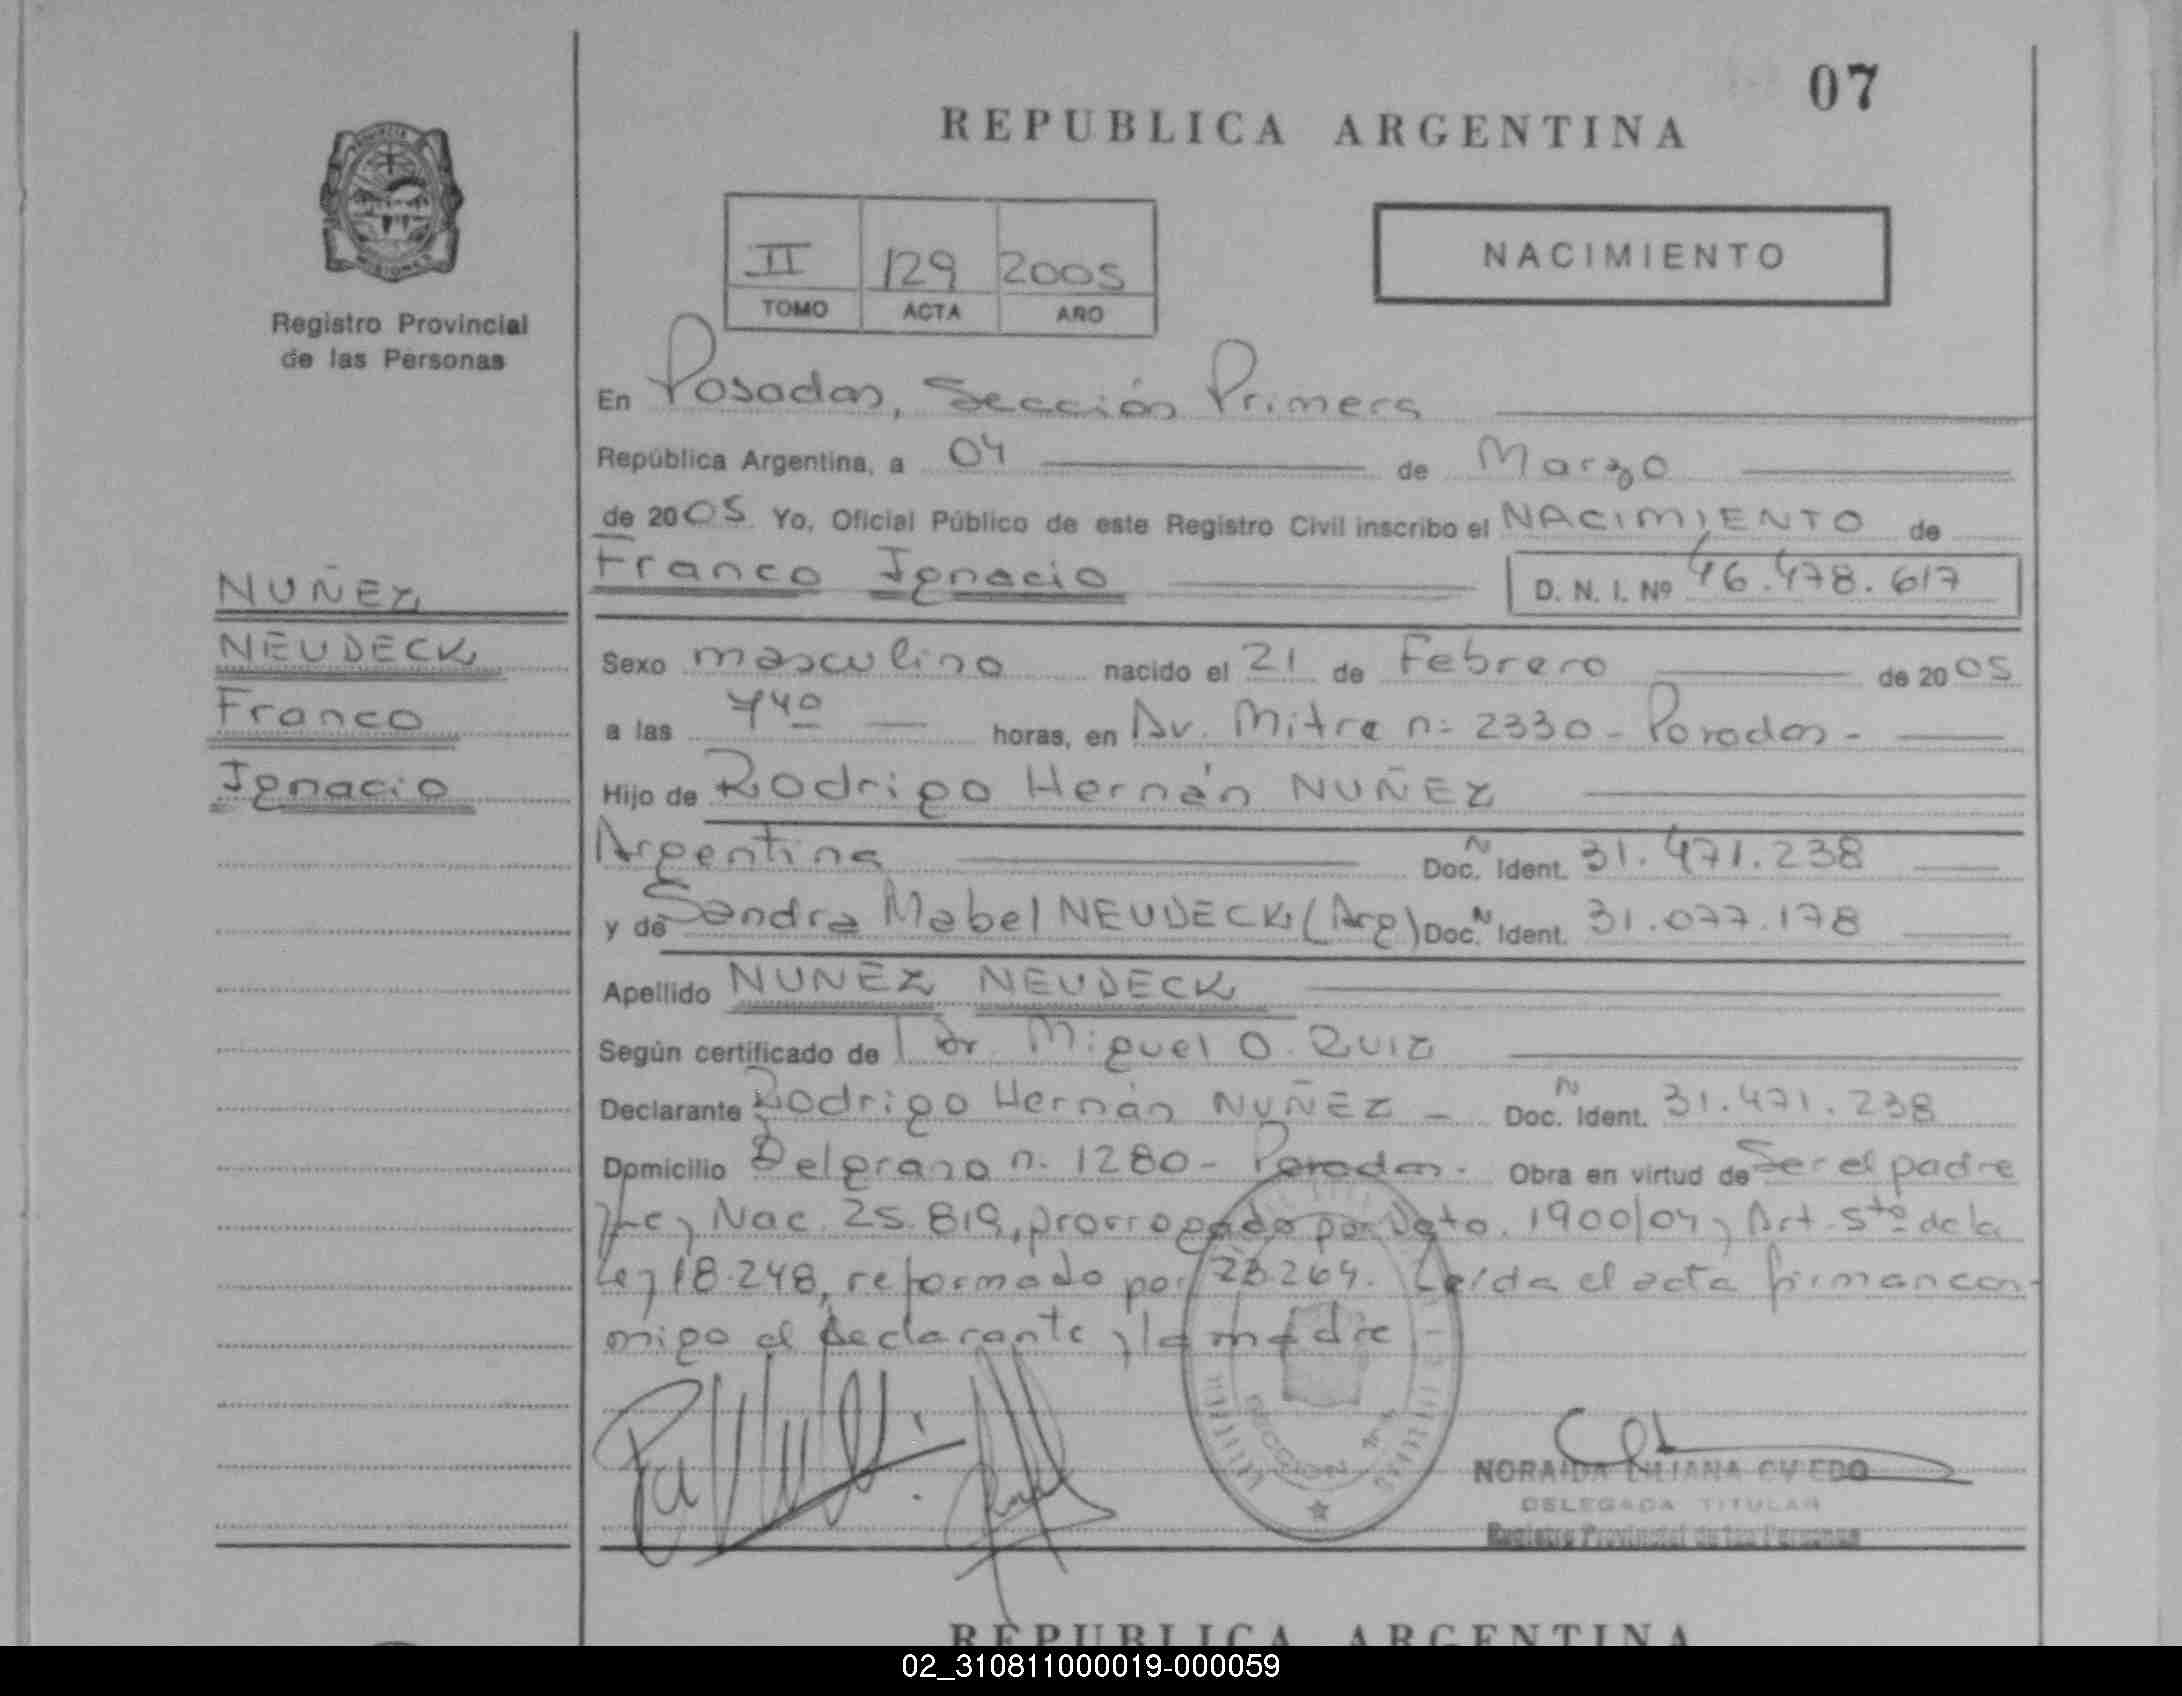 07
REPUBLICA ARGENTINA
II 129 2005
TOMO ACTA AÑO
NACIMIENTO
Registro Provincial
de las Personas
En Posadas, Sección Primera
República Argentina, a 04 de Marzo
de 2005 Yo, Oficial Público de este Registro Civil inscribo el NACIMIENTO de
Franco Ignacio D. N. I. Nº 46.478.617
NUÑEZ
NEUDECK
Franco
Ignacio
Sexo masculino nacido el 21 de Febrero de 2005
a las 7 40 horas, en Av. Mitre n: 2330 - Posadas -
Hijo de Rodrigo Hernán NUÑEZ
Argentina Doc. N Ident. 31.471.238
y de Sandra Mabel NEUDECK (Arg) Doc. N Ident. 31.077.178
Apellido NUÑEZ NEUDECK
Según certificado de Dr. Miguel O. Ruiz
Declarante Rodrigo Hernán NUÑEZ - Doc. N Ident. 31.471.238
Domicilio Belgrano n. 1280 - Posadas - Obra en virtud de Ser el padre
y Ley Nac. 25.819, prorrogado por Dto. 1900/04 y Art. 5to de la
Ley 18.248, reformado por 23.264. Leída el acta firman con-
migo el declarante y la madre
SECCION 1ra
NORAIDA LILIANA OVIEDO
DELEGADA TITULAR
Registro Provincial de las Personas
REPUBLICA ARGENTINA
02_310811000019-000059